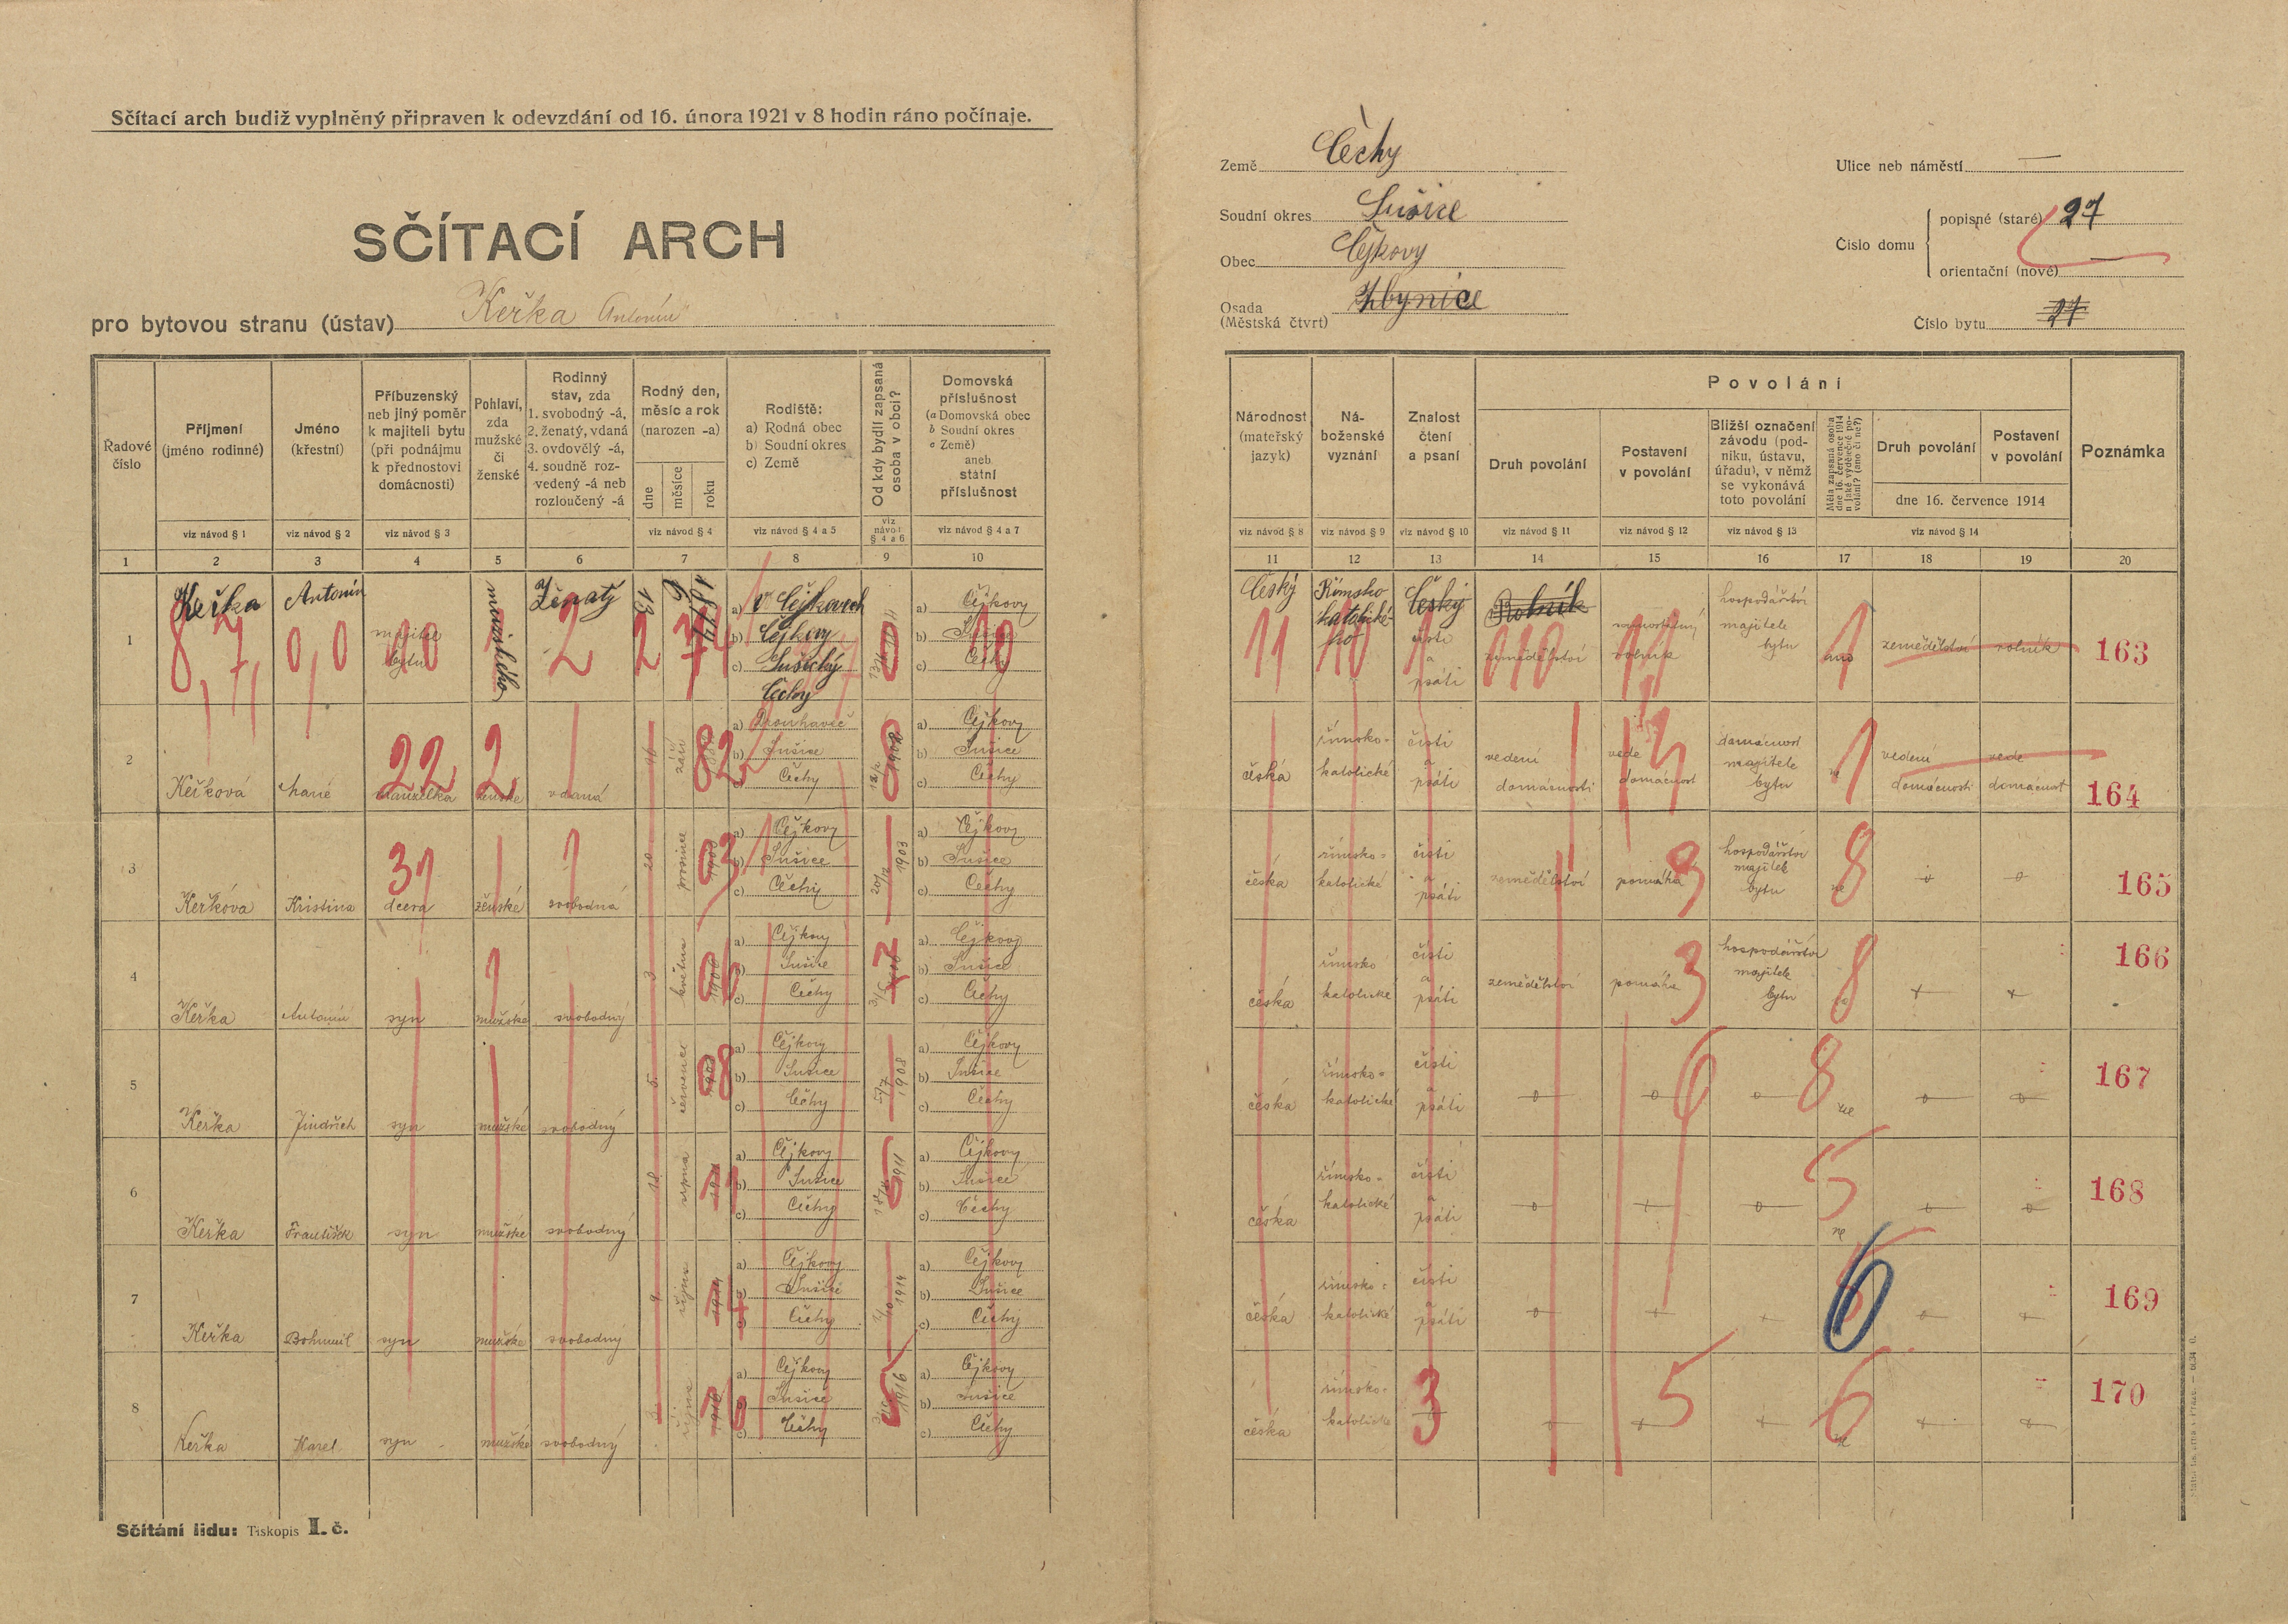 Sčítací arch budiž vyplněný připraven k odevzdání od 16. února 1921 v 8 hodin ráno počínaje.
SČÍTACÍ ARCH
pro bytovou stranu (ústav) Keřka Antonín
Země Čechy
Soudní okres Sušice
Obec Čejkovy
Osada (Městská čtvrt) Zbynice
Ulice neb náměstí —
Číslo domu
popisné (staré) 27
orientační (nové) —
Číslo bytu 27
Řadové číslo
Příjmení (jméno rodinné)
Jméno (křestní)
Příbuzenský neb jiný poměr k majiteli bytu (při podnájmu k přednostovi domácnosti)
Pohlaví, zda mužské či ženské
Rodinný stav, zda 1. svobodný -á, 2. ženatý, vdaná 3. ovdovělý -á, 4. soudně rozvedený -á neb rozloučený -á
Rodný den, měsíc a rok (narozen -a)
dne měsíce roku
Rodiště: a) Rodná obec b) Soudní okres c) Země
Od kdy bydlí zapsaná osoba v obci?
Domovská příslušnost (a Domovská obec b Soudní okres c Země) aneb státní příslušnost
Národnost (mateřský jazyk)
Náboženské vyznání
Znalost čtení a psaní
Povolání
Druh povolání
Postavení v povolání
Bližší označení závodu (podniku, ústavu, úřadu), v němž se vykonává toto povolání
Měla zapsaná osoba dne 16. července 1914 nějaké výdělečné povolání? (ano či ne?)
Druh povolání
Postavení v povolání
dne 16. července 1914
Poznámka
viz návod § 1 viz návod § 2 viz návod § 3 viz návod § 4 viz návod § 4 a 5 viz návod § 4 a 6 viz návod § 4 a 7
viz návod § 8 viz návod § 9 viz návod § 10 viz návod § 11 viz návod § 12 viz návod § 13 viz návod § 14
1 2 3 4 5 6 7 8 9 10 11 12 13 14 15 16 17 18 19 20
1 Keřka Antonín majitel bytu mužského Ženatý 13 6
a) v Čejkovech Čejkovy
b) Sušický
c) Čechy
a) Čejkovy
b) Sušice
c) Čechy
Český Římsko katolické Český čísti a psáti Rolník zemědělství samostatný rolník hospodářství majitele bytu ano zemědělství rolník 163
8,7, 0,0 10 2 2 74 0 10 11 10 1 010 11 1
2 Keřková Marie manželka ženské vdaná září
a) Drouhaveč
b) Sušice
c) Čechy
1902
a) Čejkovy
b) Sušice
c) Čechy
česká římsko-katolické čísti a psáti vedení domácnosti vede domácnost domácnost majitele bytu ne vedení domácnosti vede domácnost 164
22 2 82 8 1
3 Keřková Kristina dcera ženské svobodná 20 prosince 1903
a) Čejkovy
b) Sušice
c) Čechy
20/12 1903
a) Čejkovy
b) Sušice
c) Čechy
česká římsko-katolické čísti a psáti zemědělství pomáhá hospodářství majitele bytu ne 165
31 03 3 8
4 Keřka Antonín syn mužské svobodný 3 května 1906
a) Čejkovy
b) Sušice
c) Čechy
a) Čejkovy
b) Sušice
c) Čechy
česká římsko katolické čísti a psáti zemědělství pomáhá hospodářství majitele bytu 166
06 7 3 8
5 Keřka Jindřich syn mužské svobodný 5. července 1908
a) Čejkovy
b) Sušice
c) Čechy
5/7 1908
a) Čejkovy
b) Sušice
c) Čechy
česká římsko-katolické čísti a psáti ne 167
08 6 8
6 Keřka František syn mužské svobodný 18 srpna
a) Čejkovy
b) Sušice
c) Čechy
1911
a) Čejkovy
b) Sušice
c) Čechy
česká římsko-katolické čísti a psáti ne 168
11 5 5
7 Keřka Bohumil syn mužské svobodný 9. října 1914
a) Čejkovy
b) Sušice
c) Čechy
1914
a) Čejkovy
b) Sušice
c) Čechy
česká římsko-katolické čísti a psáti 169
14 6
8 Keřka Karel syn mužské svobodný října 1916
a) Čejkovy
b) Sušice
c) Čechy
1916
a) Čejkovy
b) Sušice
c) Čechy
česká římsko-katolické ne 170
16 5 3 5 6
Sčítání lidu: Tiskopis I. č.